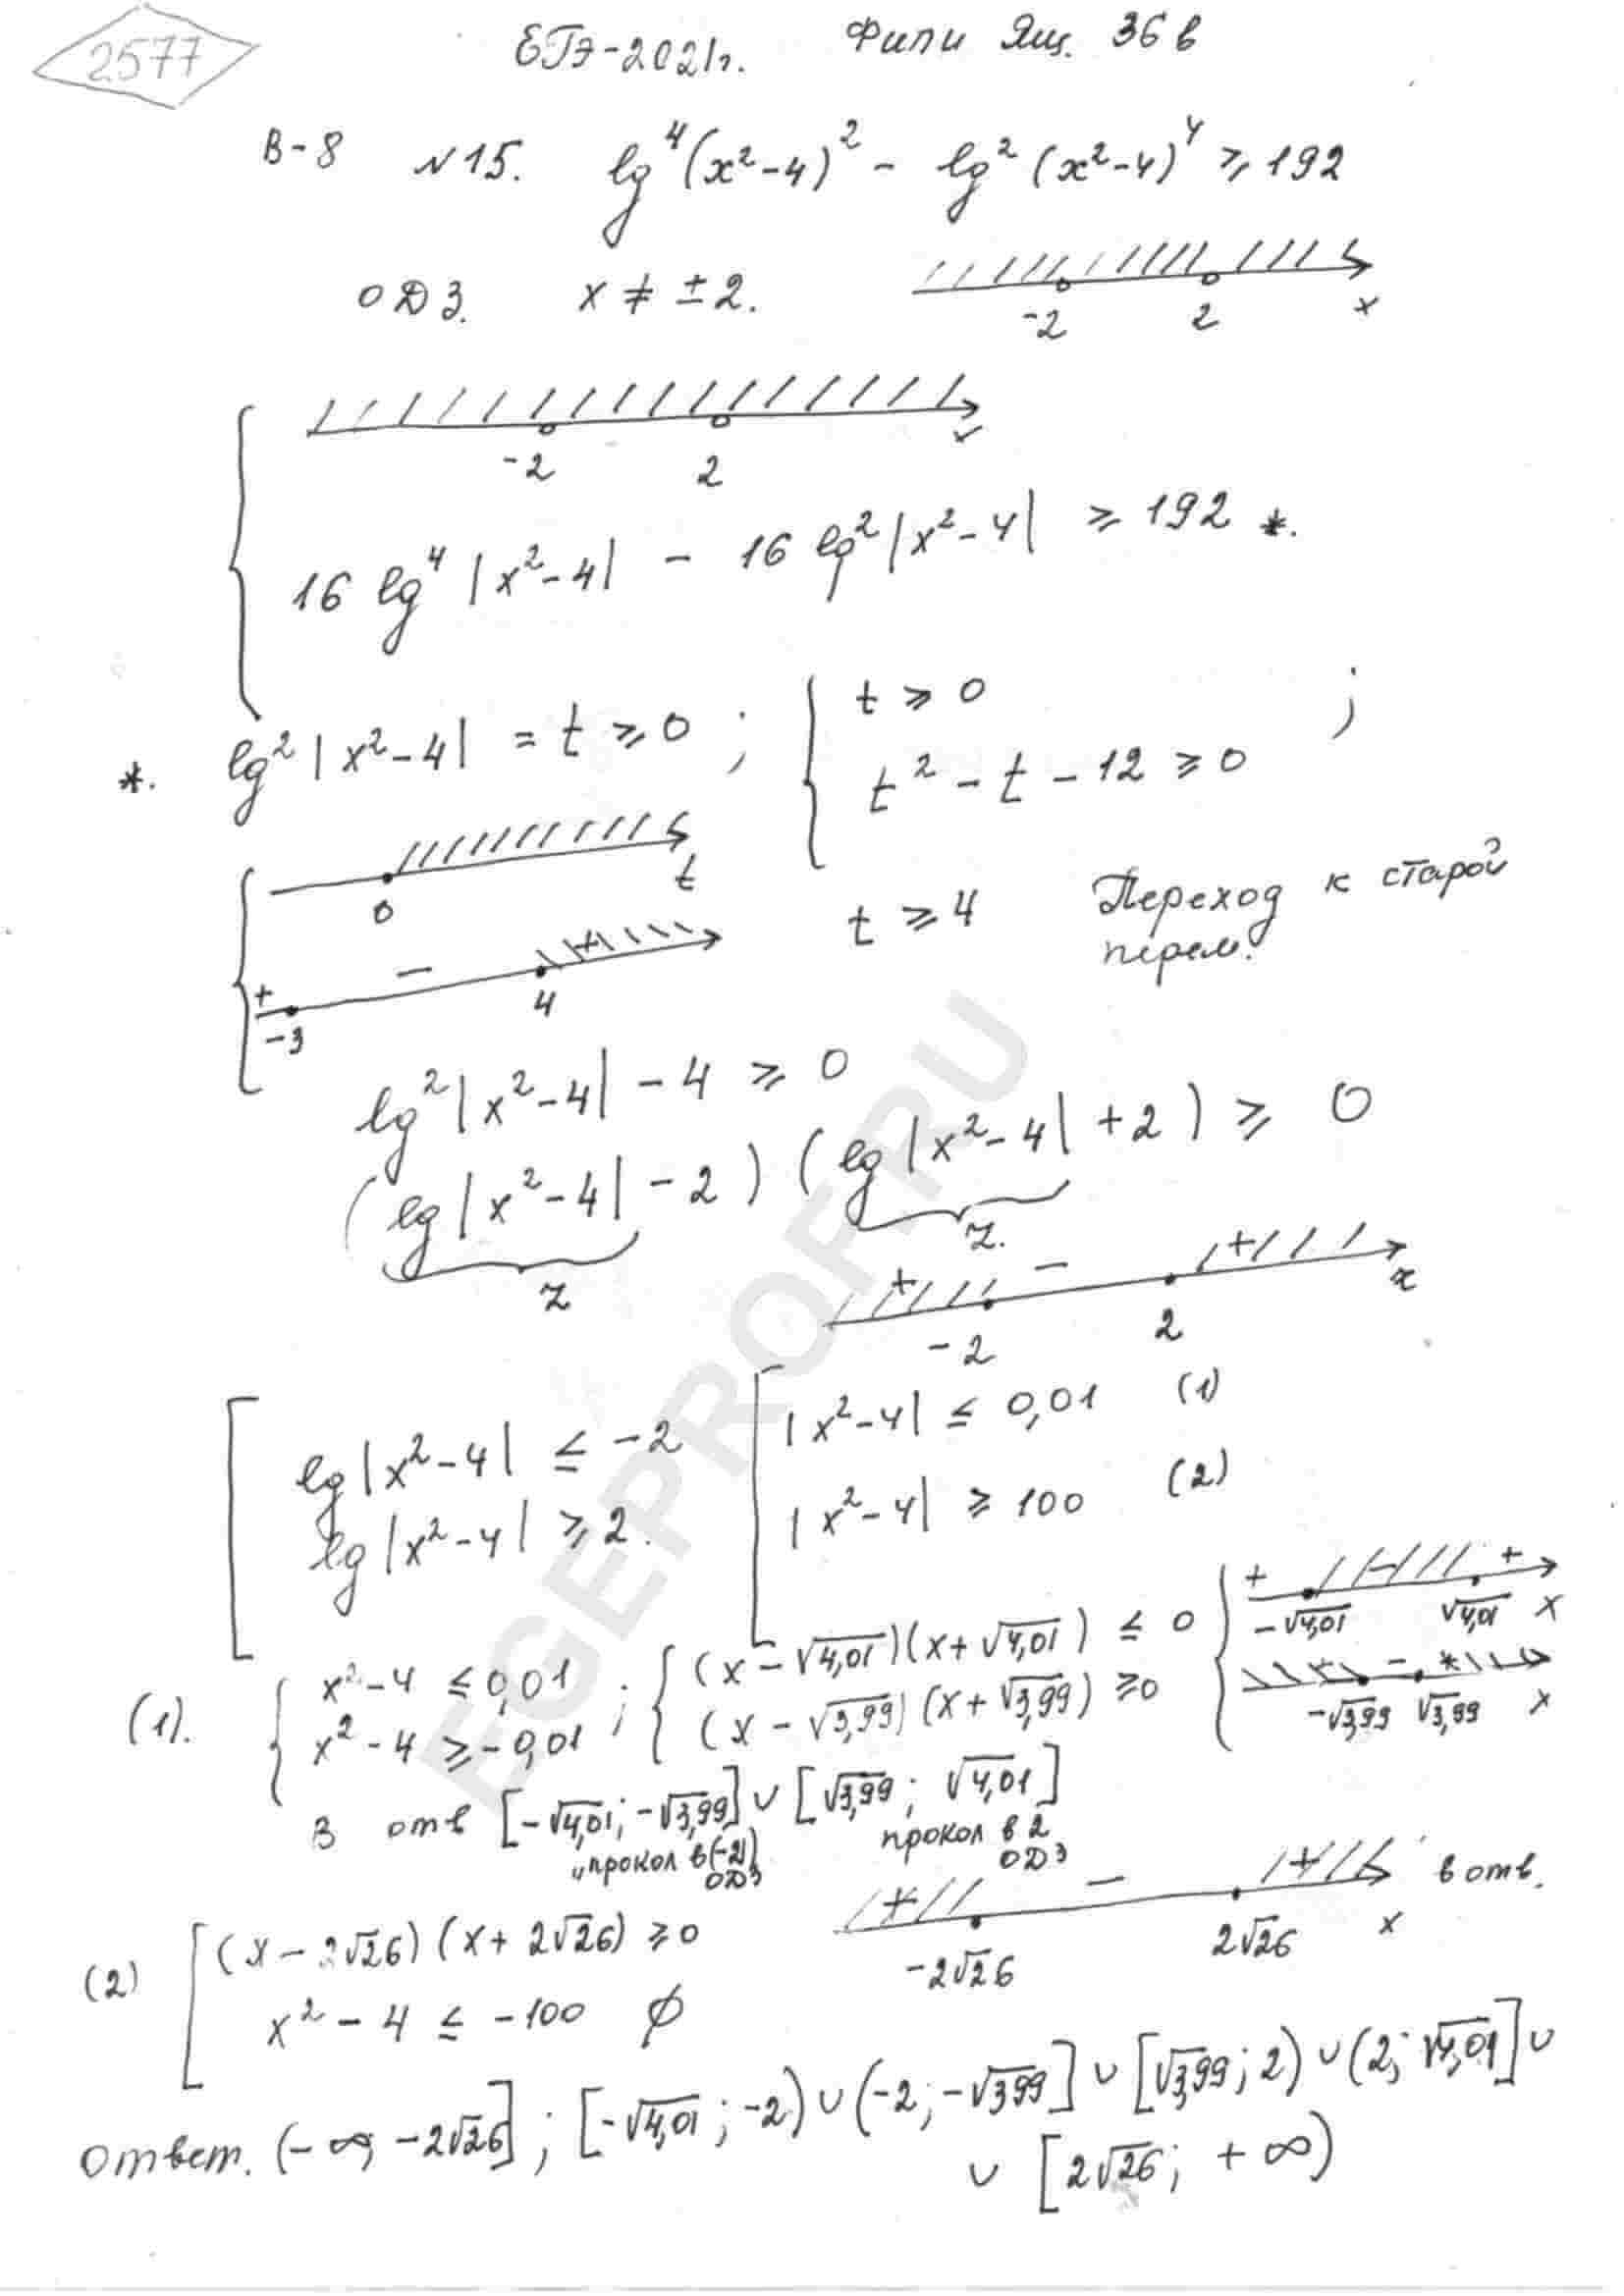 2577
ЕГЭ-2021г. Фипи Ящ. 36 в
В-8 №15. lg⁴(x²-4)² - lg²(x²-4)⁴ ≥ 192
ОДЗ. x ≠ ±2.
-2 2 x
-2 2 x
16 lg⁴|x²-4| - 16 lg²|x²-4| ≥ 192 *.
*. lg²|x²-4| = t ≥ 0 ; { t ≥ 0 ;
t² - t - 12 ≥ 0
0 t
t ≥ 4 Переход к старой
перем.
+ - +
-3 4
lg²|x²-4| - 4 ≥ 0
(lg|x²-4| - 2)(lg|x²-4| + 2) ≥ 0
z z.
+ - +
-2 2 z
[ lg|x²-4| ≤ -2 [ |x²-4| ≤ 0,01 (1)
lg|x²-4| ≥ 2. |x²-4| ≥ 100 (2)
(1). { x²-4 ≤ 0,01 ; { (x-√4,01)(x+√4,01) ≤ 0
x²-4 ≥ -0,01 (x-√3,99)(x+√3,99) ≥ 0
+ - +
-√4,01 √4,01 x
+ - +
-√3,99 √3,99 x
В отв [-√4,01; -√3,99] ∪ [√3,99; √4,01]
"прокол в (-2) прокол в 2
ОДЗ ОДЗ
(2) [ (x-2√26)(x+2√26) ≥ 0
x² - 4 ≤ -100 ∅
+ - + в отв.
-2√26 2√26 x
Ответ. (-∞; -2√26]; [-√4,01; -2) ∪ (-2; -√3,99] ∪ [√3,99; 2) ∪ (2; √4,01] ∪
∪ [2√26; +∞)
EGEPROF.RU